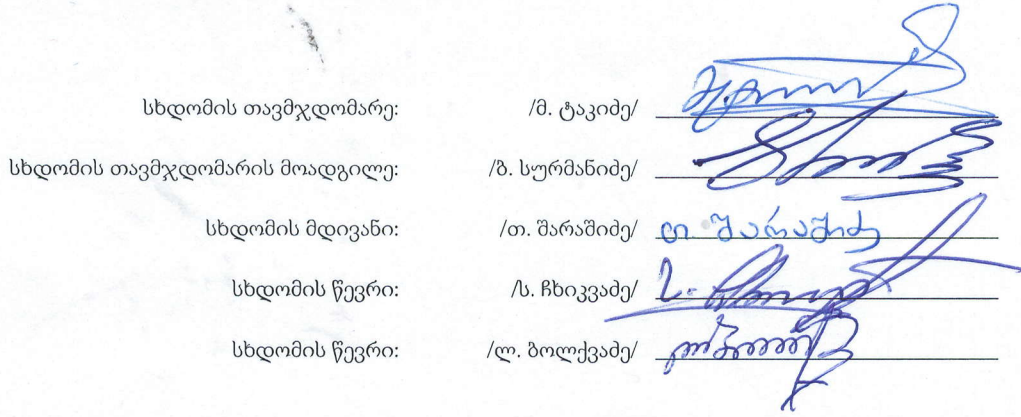 სხდომის თავმჯდომარე: /მ. ტაკიძე/
სხდომის თავმჯდომარის მოადგილე: /ბ. სურმანიძე/
სხდომის მდივანი: /თ. შარაშიძე/ თ. შარაშიძე
სხდომის წევრი: /ს. ჩხიკვაძე/
სხდომის წევრი: /ლ. ბოლქვაძე/